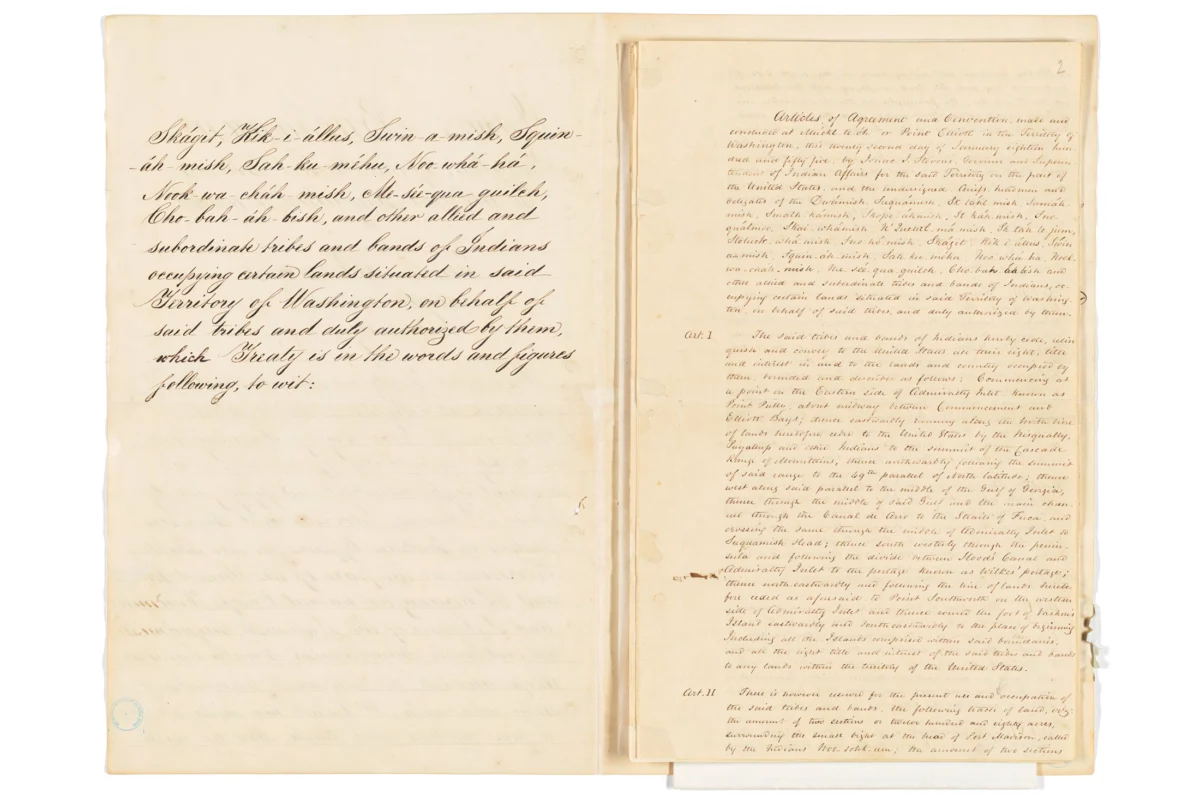 Skágit, Kik-i-állus, Swin-a-mish, Squin-
-áh-mish, Sah-ku-méhu, Noo-whá-há,
Nook-wa-cháh-mish, Me-sée-qua-guilch,
Cho-bah-áh-bish, and other allied and
subordinate tribes and bands of Indians
occupying certain lands situated in said
Territory of Washington, on behalf of
said tribes and duly authorized by them,
which Treaty is in the words and figures
following, to wit:
2
Articles of Agreement and Convention, made and
concluded at Muckl te óh or Point Elliott in the Territory of
Washington, this twenty second day of January eighteen hun-
dred and fifty five, by Isaac I. Stevens, Governor and Superin-
tendent of Indian Affairs for the said Territory on the part of
the United States, and the undersigned Chiefs, headmen and
delegates of the Dwámish, Suquámish, Sk táhl mish, Samáh-
mish, Smalh kámish, Skope áhmish, St káh mish, Sno-
quálmoo, Skai whá mish, N'Quentl má mish, Sk táh le jum,
Stoluck whá mish, Sno hó mish, Skágit, Kik i állus, Swin
a mish, Squin áh mish, Sah ku méhu, Noo whá ha, Nook
wa chah mish, Me sée qua guilch, Cho bah áh bish and
other allied and subordinate tribes and bands of Indians, oc-
cupying certain lands situated in said Territory of Washing-
ton, on behalf of said tribes, and duly authorized by them.
Art. I The said tribes and bands of Indians hereby cede, relin
quish and convey to the United States all their right, title
and interest in and to the lands and country occupied by
them, bounded and described as follows: Commencing at
a point on the Eastern side of Admiralty Inlet, known as
Point Pully, about midway between Commencement and
Elliott Bays; thence eastwardly running along the North line
of lands heretofore ceded to the United States by the Nisqually,
Puyallup and other Indians to the summit of the Cascade
Range of Mountains, thence northwardly following the summit
of said range to the 49th parallel of North latitude; thence
west along said parallel to the middle of the Gulf of Georgia;
thence through the middle of said Gulf and the main chan-
nel through the Canal de Arro to the Straits of Fuca, and
crossing the same through the middle of Admiralty Inlet to
Suquamish Head; thence south westerly through the penin-
sula and following the divide between Hood's Canal and
Admiralty Inlet to the portage known as Wilkes' portage;
thence north eastwardly and following the line of lands hereto-
fore ceded as aforesaid to Point Southworth on the western
side of Admiralty Inlet and thence round the foot of Vashon's
Island eastwardly and southeastwardly to the place of beginning
Including all the Islands comprised within said boundaries,
and all the right title and interest of the said tribes and bands
to any lands within the territory of the United States.
Art. II There is however reserved for the present use and occupation of
the said tribes and bands, the following tracts of land, viz:
the amount of two sections or twelve hundred and eighty acres,
surrounding the small bight at the head of Port Madison, called
by the Indians Noo-sohk-um; the amount of two sections